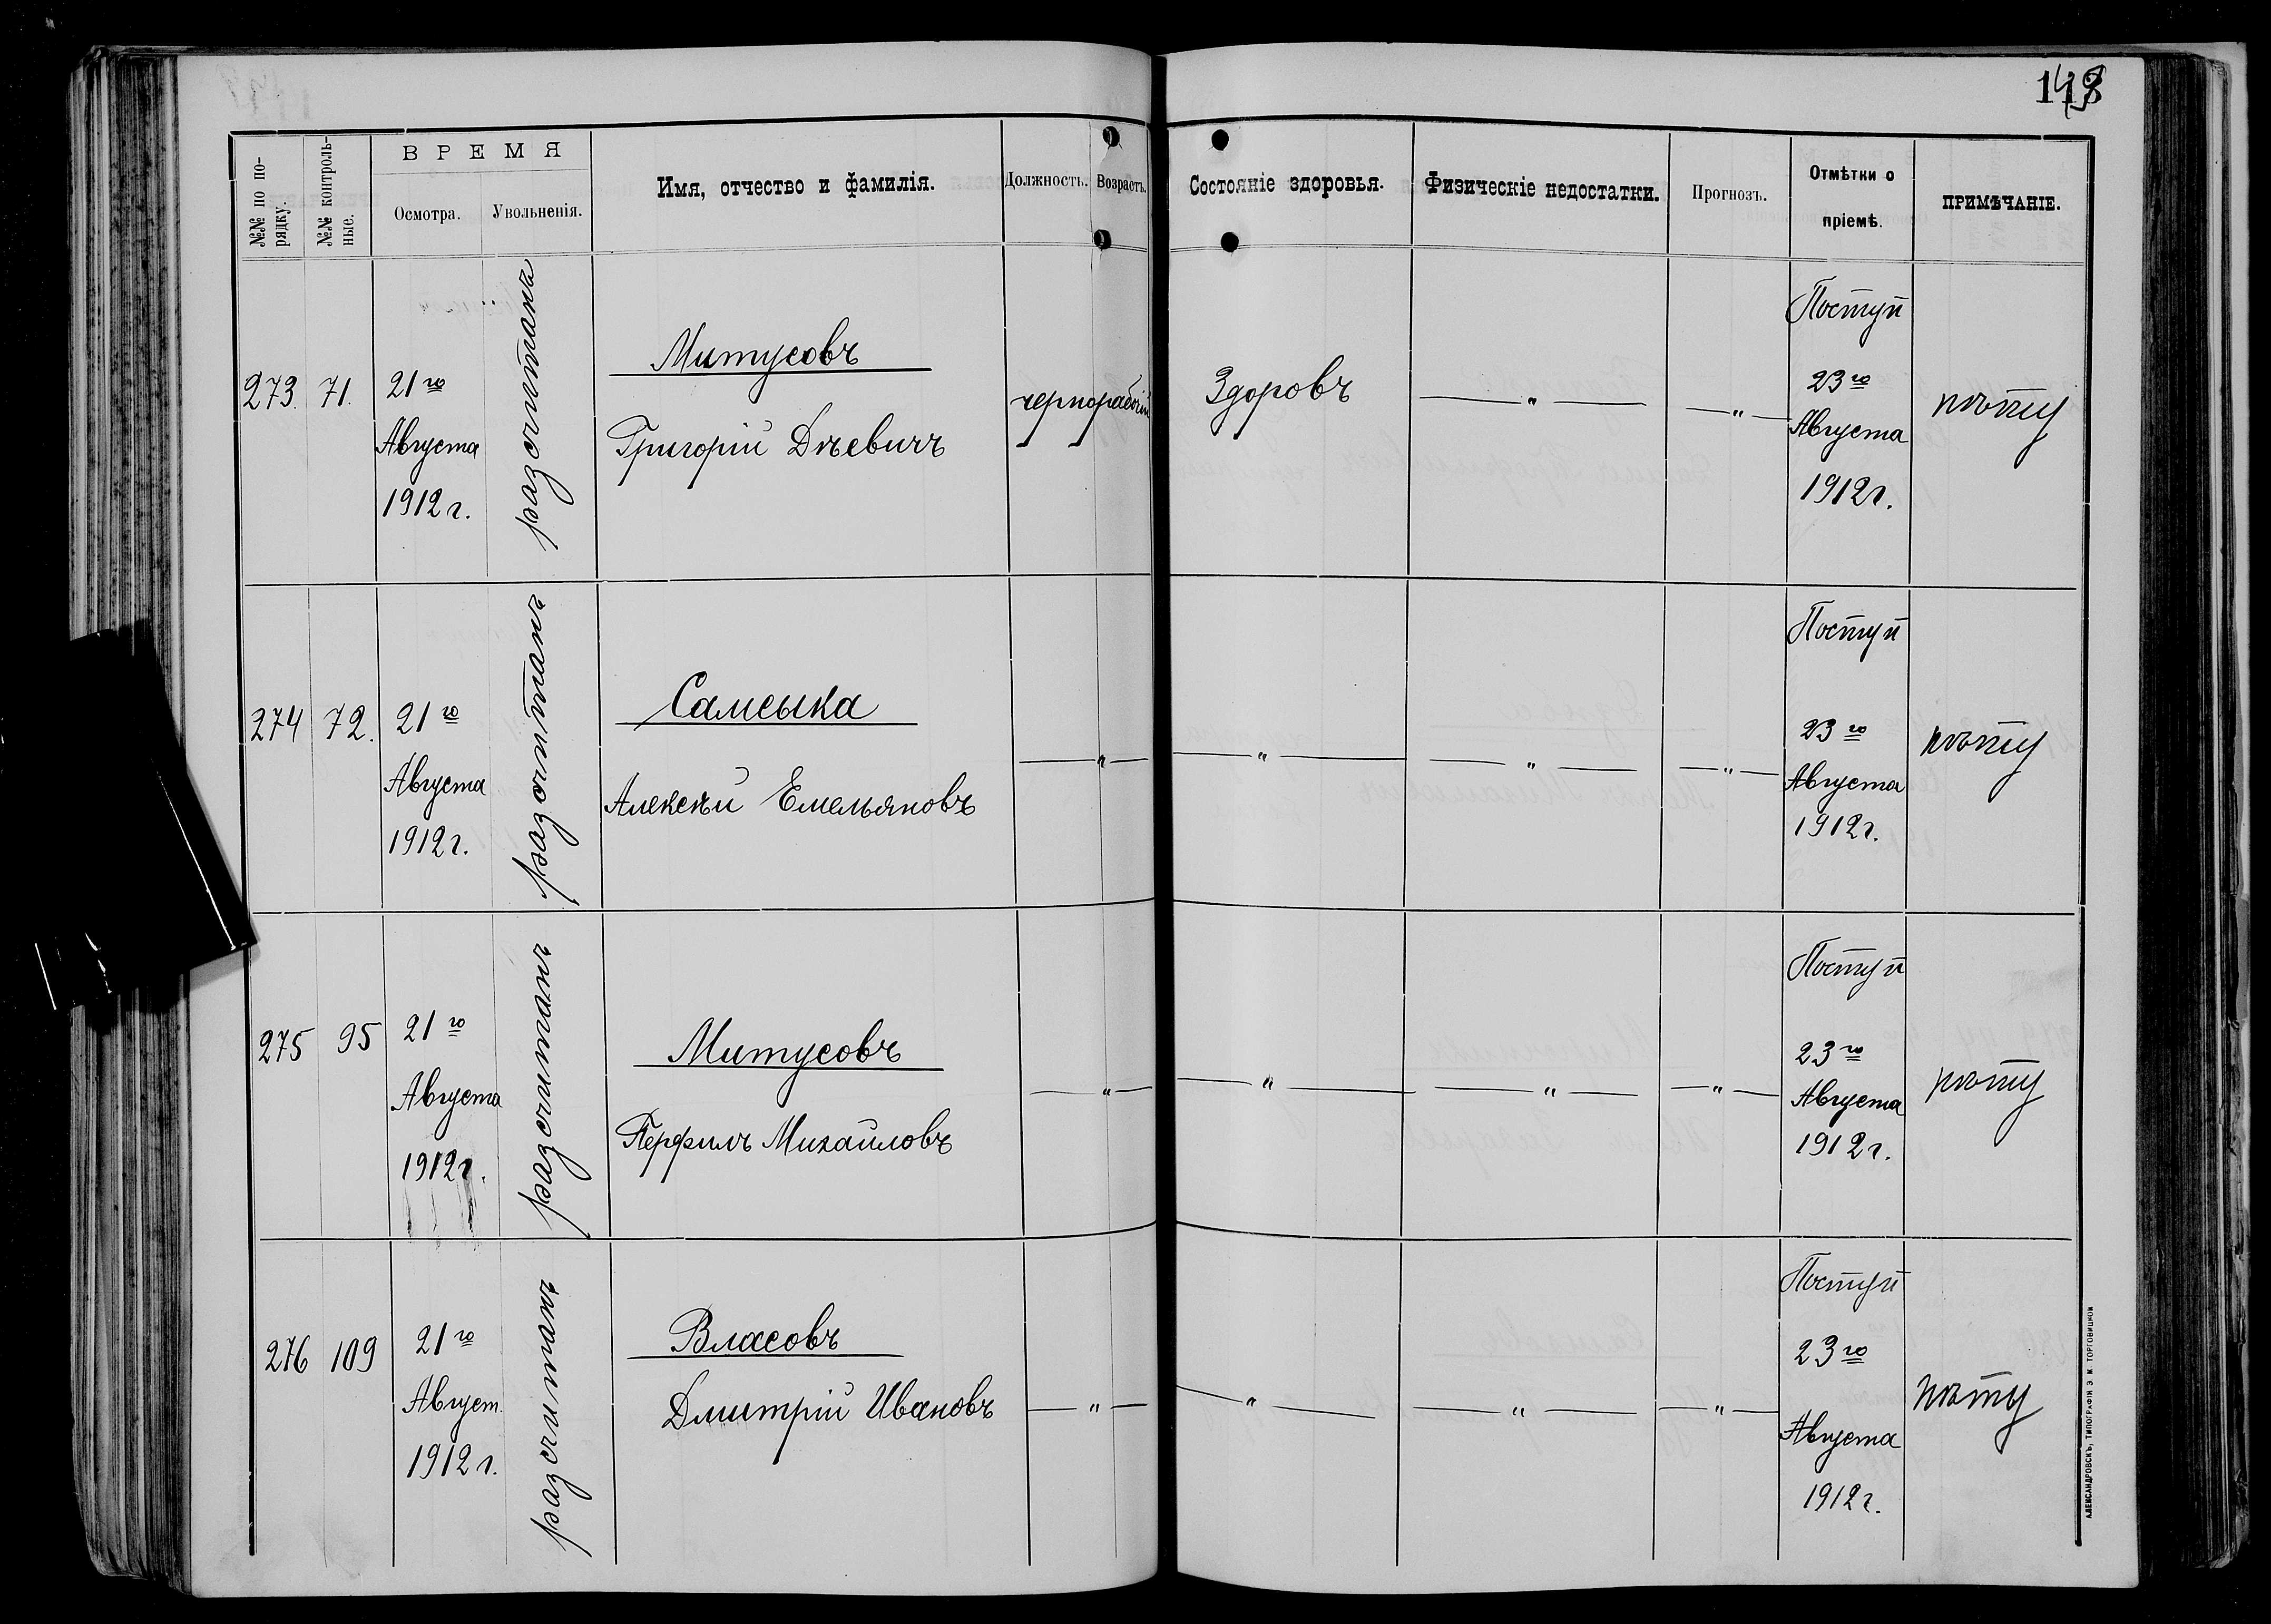 ВРЕМЯ
№№ по по-
рядку.
№№ контроль-
ные.
Осмотра.
Увольненія.
Имя, отчество и фамилія.
Должность.
Возрастъ.
Состояніе здоровья.
Физическіе недостатки.
Прогнозъ.
Отмѣтки о
пріемѣ.
ПРИМѢЧАНІЕ.
273.
71.
21го
Августа
1912 г.
разсчитанъ
Митусовъ
Григорій
чернорабочій
Здоровъ
— " —
— " —
Поступ
23го
Августа
1912 г.
274
72.
21го
Августа
1912 г.
разсчитанъ
Самсыка
Алексѣй Емельяновъ
— " —
— " —
— " —
— " —
Поступ
23го
Августа
1912 г.
275
95
21го
Августа
1912 г.
разсчитанъ
Митусовъ
Перфилъ Михайловъ
— " —
— " —
— " —
— " —
Поступ
23го
Августа
1912 г.
276
109
21го
Август.
1912 г.
разсчитанъ
Власовъ
Дмитрій Ивановъ
— " —
— " —
— " —
— " —
Поступ
23го
Августа
1912 г.
АЛЕКСАНДРОВСКЪ, ТИПОГРАФІЯ Э. М. ТОРГОВИЦКОЙ